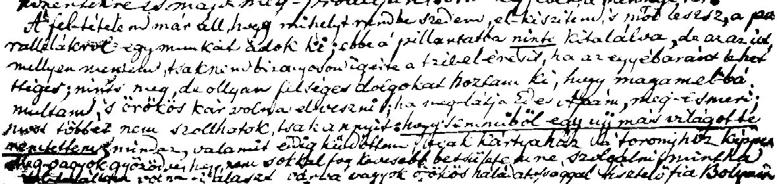 A feltételem már áll, hogy mihelyt rendbe szedem, elkészitem, s mód lesz, a pa-
rallelákról egy munkát adok ki; ebbe a pillantatba nints kitalálva, de az az út,
mellyen mentem, tsaknem bizonyoson igérte a tzél el-érését, ha az egyébaránt lehet-
séges; nints meg, de ollyan felséges dolgokat hoztam ki, hogy magam elbá-
multam, s örökös kár volna elveszni; ha meglátja Édes Apám, meg-esmeri;
most többet nem szollhatok, tsak annyit: hogy semmiből egy ujj más világot te-
remtettem; mindaz, valamit eddig küldöttem, tsak kártyaház a toronyhoz képpest.
Meg vagyok győződve, hogy nem sokkal fog kevesebb betsületemre szolgálni, mintha
feltaláltam volna; választ várva vagyok örökös háládatossággal tisztelő fia Bolyai